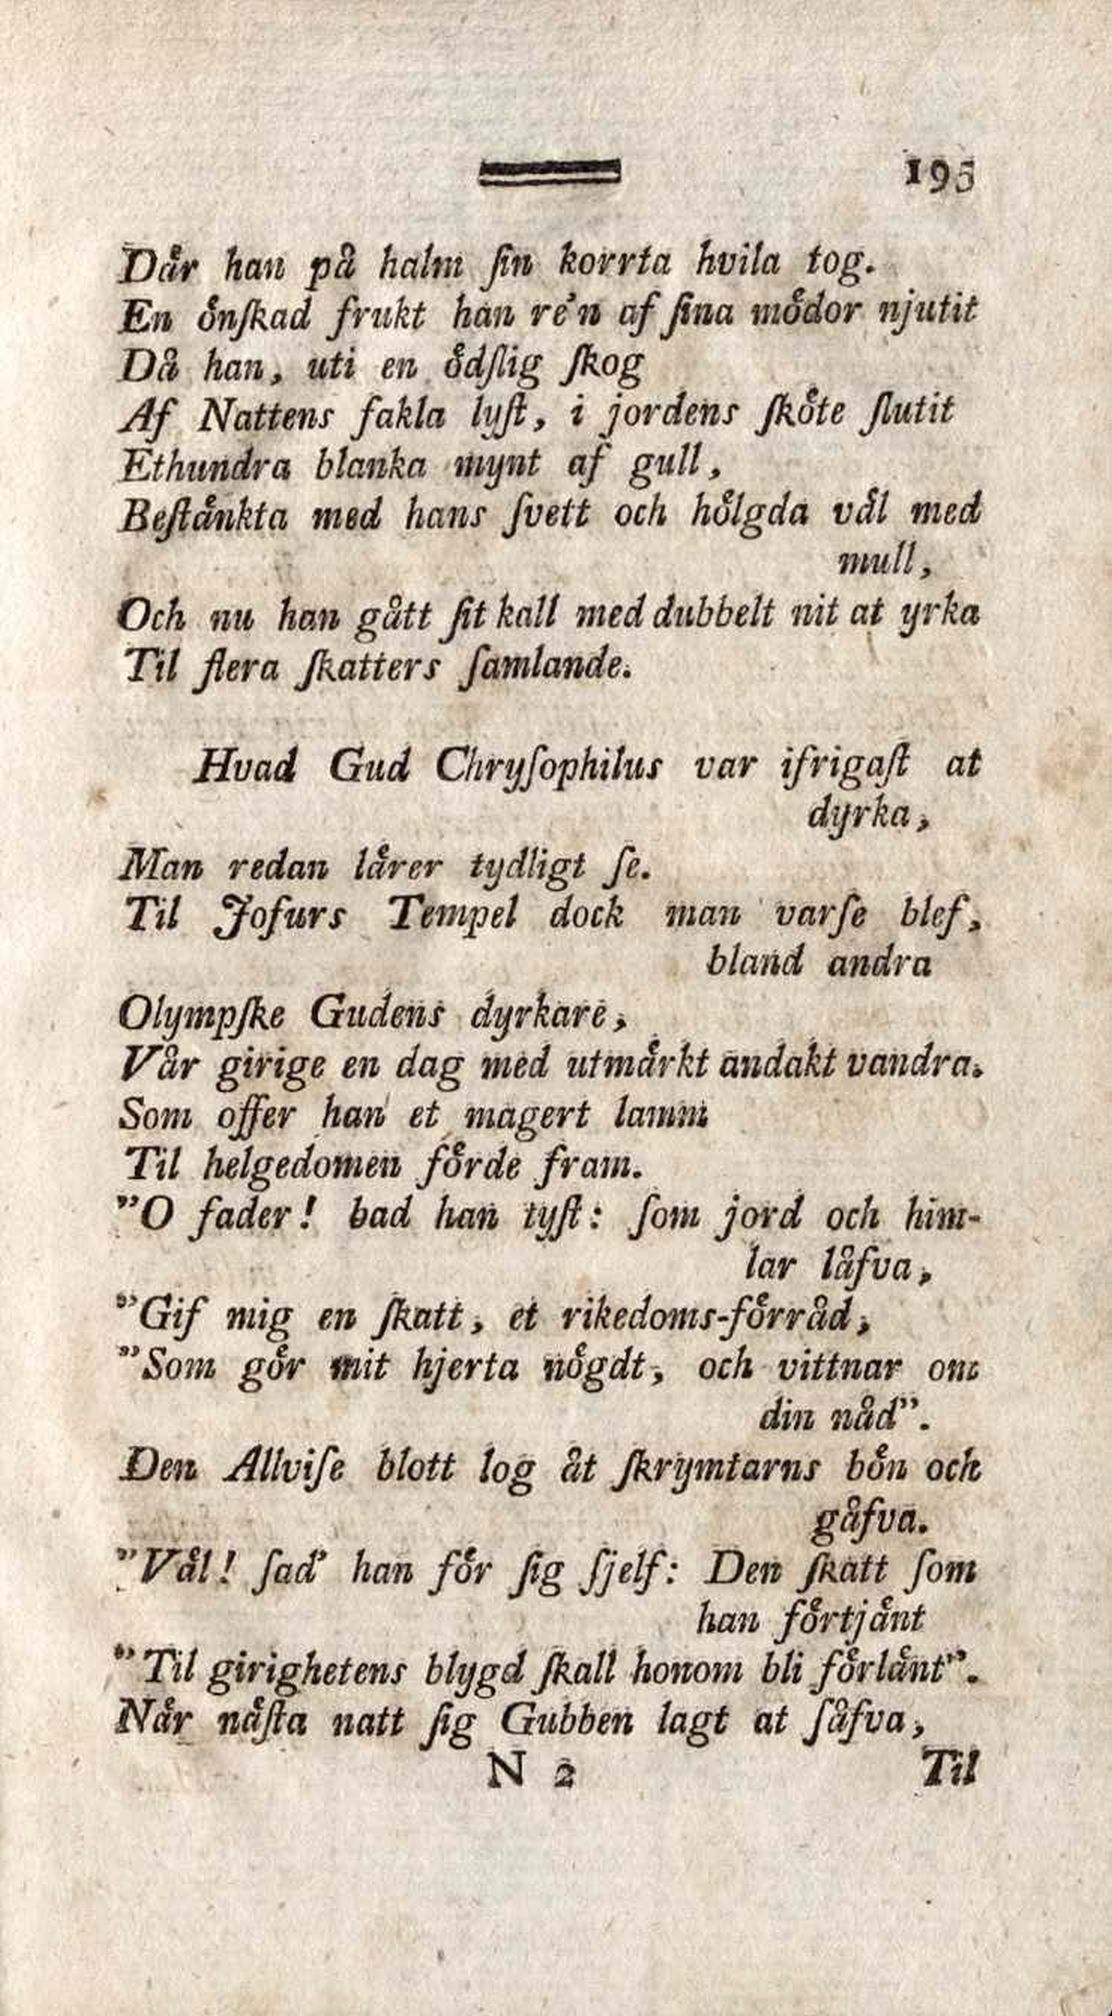 195
Dår han på halm ſin korrta hvila tog.
En ònſkad frukt han re'n af ſina mòdor njutit
Då han, uti en òdſlig ſkog
Af Nattens fakla lyſt, i jordens ſkòte ſlutit
Ethundra blanka mynt af gull,
Beſtånkta med hans ſvett och hòlgda vål med
mull,
Och nu han gått ſit kall med dubbelt nit at yrka
Til flera ſkatters ſamlande.
Hvad Gud Chryſophilus var ifrigaſt at
dyrka,
Man redan lårer tydligt ſe.
Til Jofurs Tempel dock man varſe blef,
bland andra
Olympſke Gudens dyrkare,
Vår girige en dag med utmårkt andakt vandra.
Som offer han et magert lamm
Til helgedomen fòrde fram.
”O fader! bad han tyſt: ſom jord och him-
lar låfva,
”Gif mig en ſkatt, et rikedoms-fòrråd,
”Som gòr mit hjerta nògdt, och vittnar om
din nåd”.
Den Allviſe blott log åt ſkrymtarns bòn och
gåfva.
”Vål! ſad' han fòr ſig ſjelf: Den ſkatt ſom
han fòrtjånt
”Til girighetens blygd ſkall honom bli fòrlånt”.
Når nåſta natt ſig Gubben lagt at ſåfva,
N 2 Til